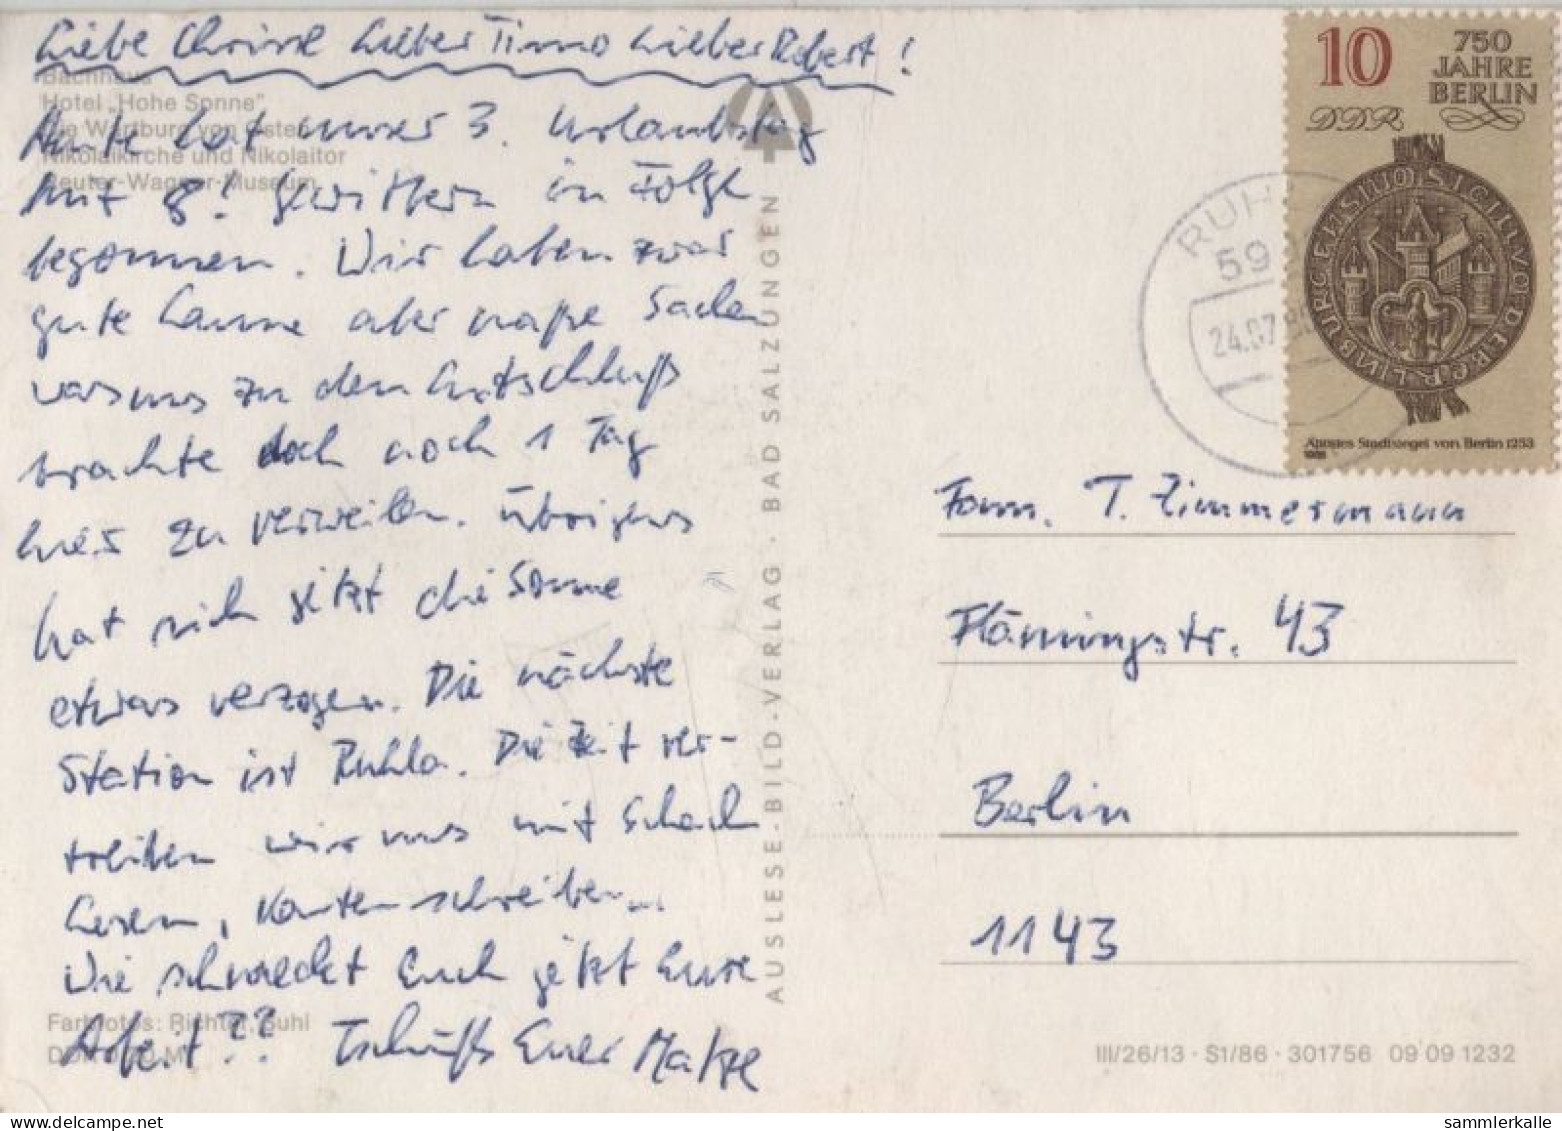 Liebe Christl Lieber Timmo Lieber Robert!
Bachhaus
Hotel „Hohe Sonne"
Die Wartburg von Osten
Nikolaikirche und Nikolaitor
Reuter-Wagner-Museum
Heute hat unser 3. Urlaubstag
mit 8! Gewittern in Folge
begonnen. Wir haben zwar
gute Laune aber naße Sachen
was uns zu dem Entschluß
brachte doch noch 1 Tag
hier zu verweilen. Übrigens
hat sich jetzt die Sonne
etwas verzogen. Die nächste
Station ist Ruhla. Die Zeit ver-
treiben wir uns mit Schach
Lesen, Karten schreiben...
Wie schmeckt Euch jetzt Eure
Arbeit?? Tschüß Euer Matze
Farbfotos: Richter, Suhl
AUSLESE-BILD-VERLAG · BAD SALZUNGEN
10
DDR
750
JAHRE
BERLIN
SIGILLVO DE BERLIN BURGENSIUM
Ältestes Stadtsiegel von Berlin 1253
RUH
59
24.07.86
Fam. T. Zimmermann
Flämingstr. 43
Berlin
1143
III/26/13 · S1/86 · 301756 09 09 1232
sammlerkalle